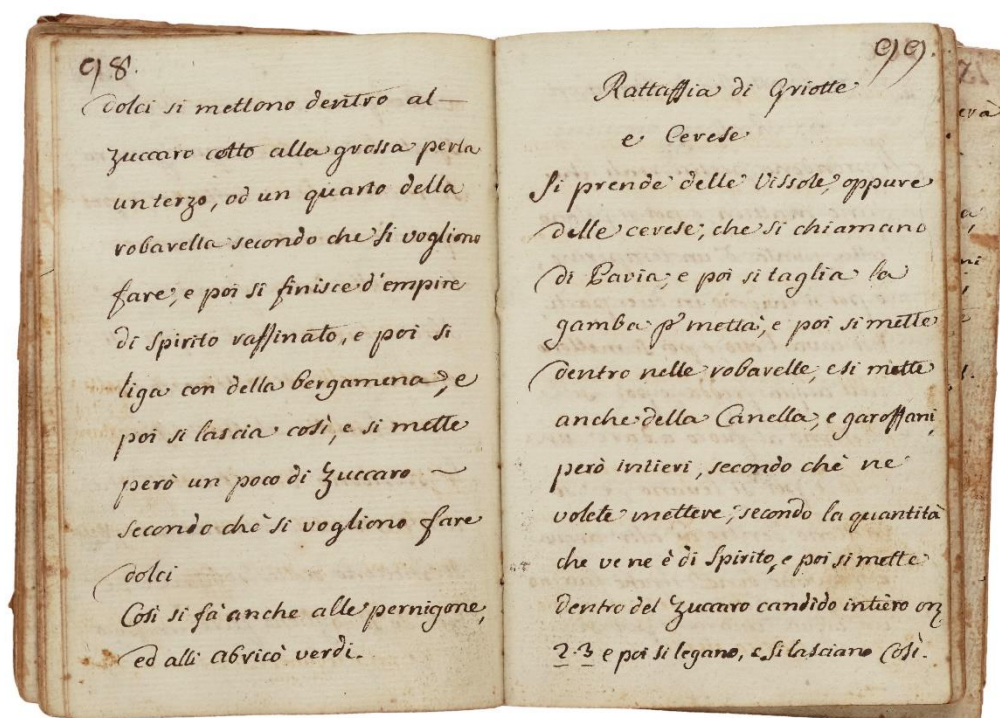 98.
dolci si mettono dentro al
zuccaro cotto alla grossa perla
un terzo, od un quarto della
robarella secondo che si vogliono
fare, e poi si finisce d'empire
di Spirito raffinato, e poi si
liga con della bergamena, e
poi si lascia così, e si mette
però un poco di zuccaro
secondo che si vogliono fare
dolci
Così si fà anche alle pernigone,
ed alli abricò verdi.
99.
Rattaffia di Griotte
e Cerese
Si prende delle Vissole, oppure
delle cerese, che si chiamano
di Pavia, e poi si taglia la
gamba p' mettà, e poi si mette
dentro nelle robarelle, e si mette
anche della Canella, e garoffani,
però intieri, secondo che ne
volete mettere, secondo la quantità
che ve ne è di Spirito, e poi si mette
dentro del zuccaro candido intiero onz
2.3 e poi si legano, e si lasciano così.